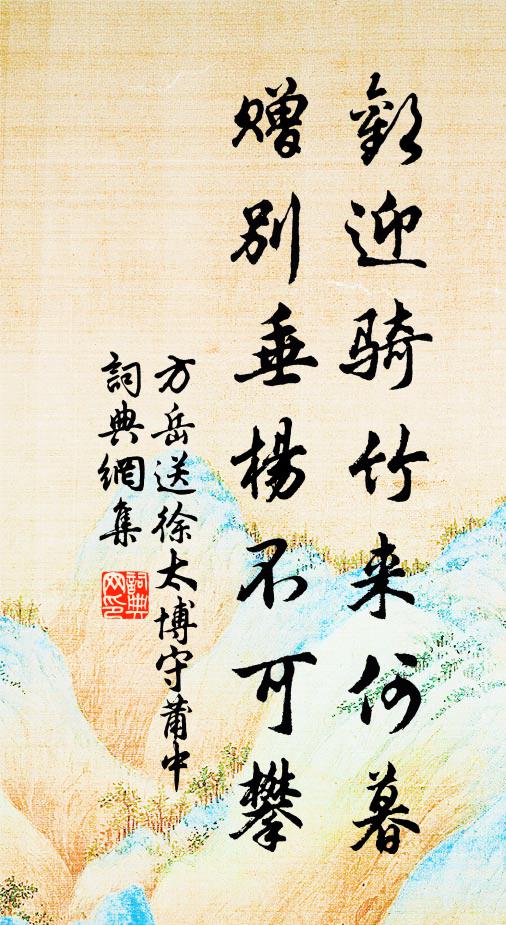 歡迎騎竹来何暮
贈別垂楊不可攀
方岳送徐太博守莆中
詞典網集
詞典网印